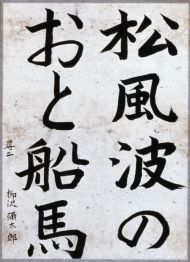 松風波の
おと船馬
尋二 柳沢彌太郎